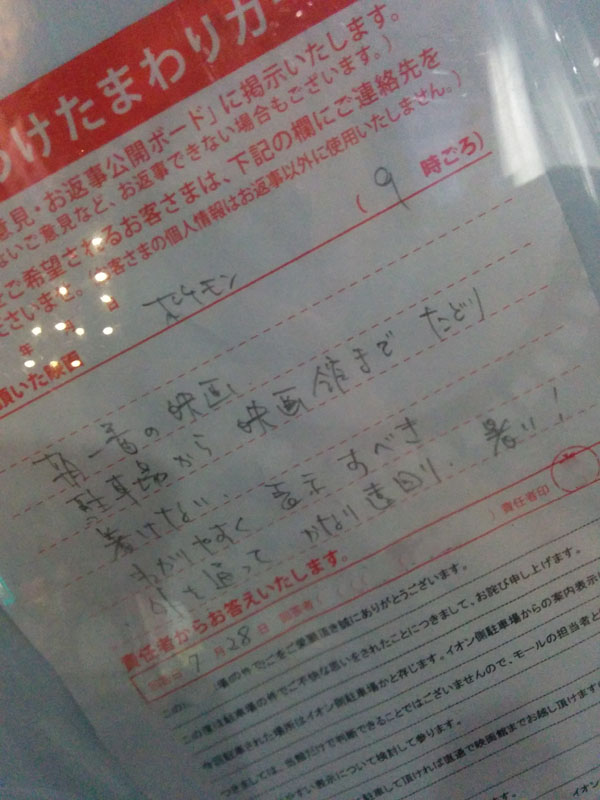 けたまわりカ
意見・お返事公開ボード」に掲示いたします。
ないご意見など、お返事できない場合もございます。)
をご希望されるお客さまは、下記の欄にご連絡先を
ださいませ。(お客さまの個人情報はお返事以外に使用いたしません。)
年 月 日 ( 9 時ごろ)
頂いた映画 ポケモン
朝一番の映画
駐車場から映画館まで たどり
着けない、
わかりやすく 表示すべき
外を通って かなり遠回り、暑い!
責任者からお答えいたします。 責任者印
7月28日 回答者(
この 場の件でご をご愛顧頂き誠にありがとうございます。
この度は駐車場の件でご不快な思いをされたことにつきまして、お詫び申し上げます。
今回駐車された場所はイオン側駐車場かと存じます。イオン側駐車場からの案内表示に
つきましては、当館だけで判断できることではございませんので、モールの担当者と
やすい表示について検討して参ります。
駐車して頂ければ直通で映画館までお越し頂けます